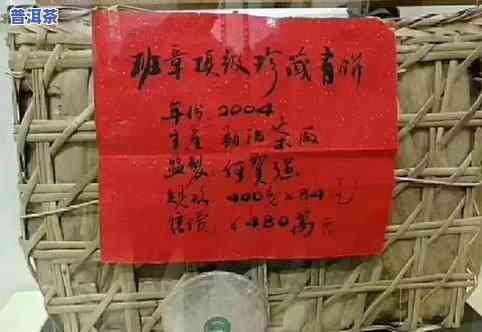 普洱茶
班章顶级珍藏青餅
年份 2004
生産 勐海茶
监製: 何寳强
规格 400克×84
售價 ¥480萬元